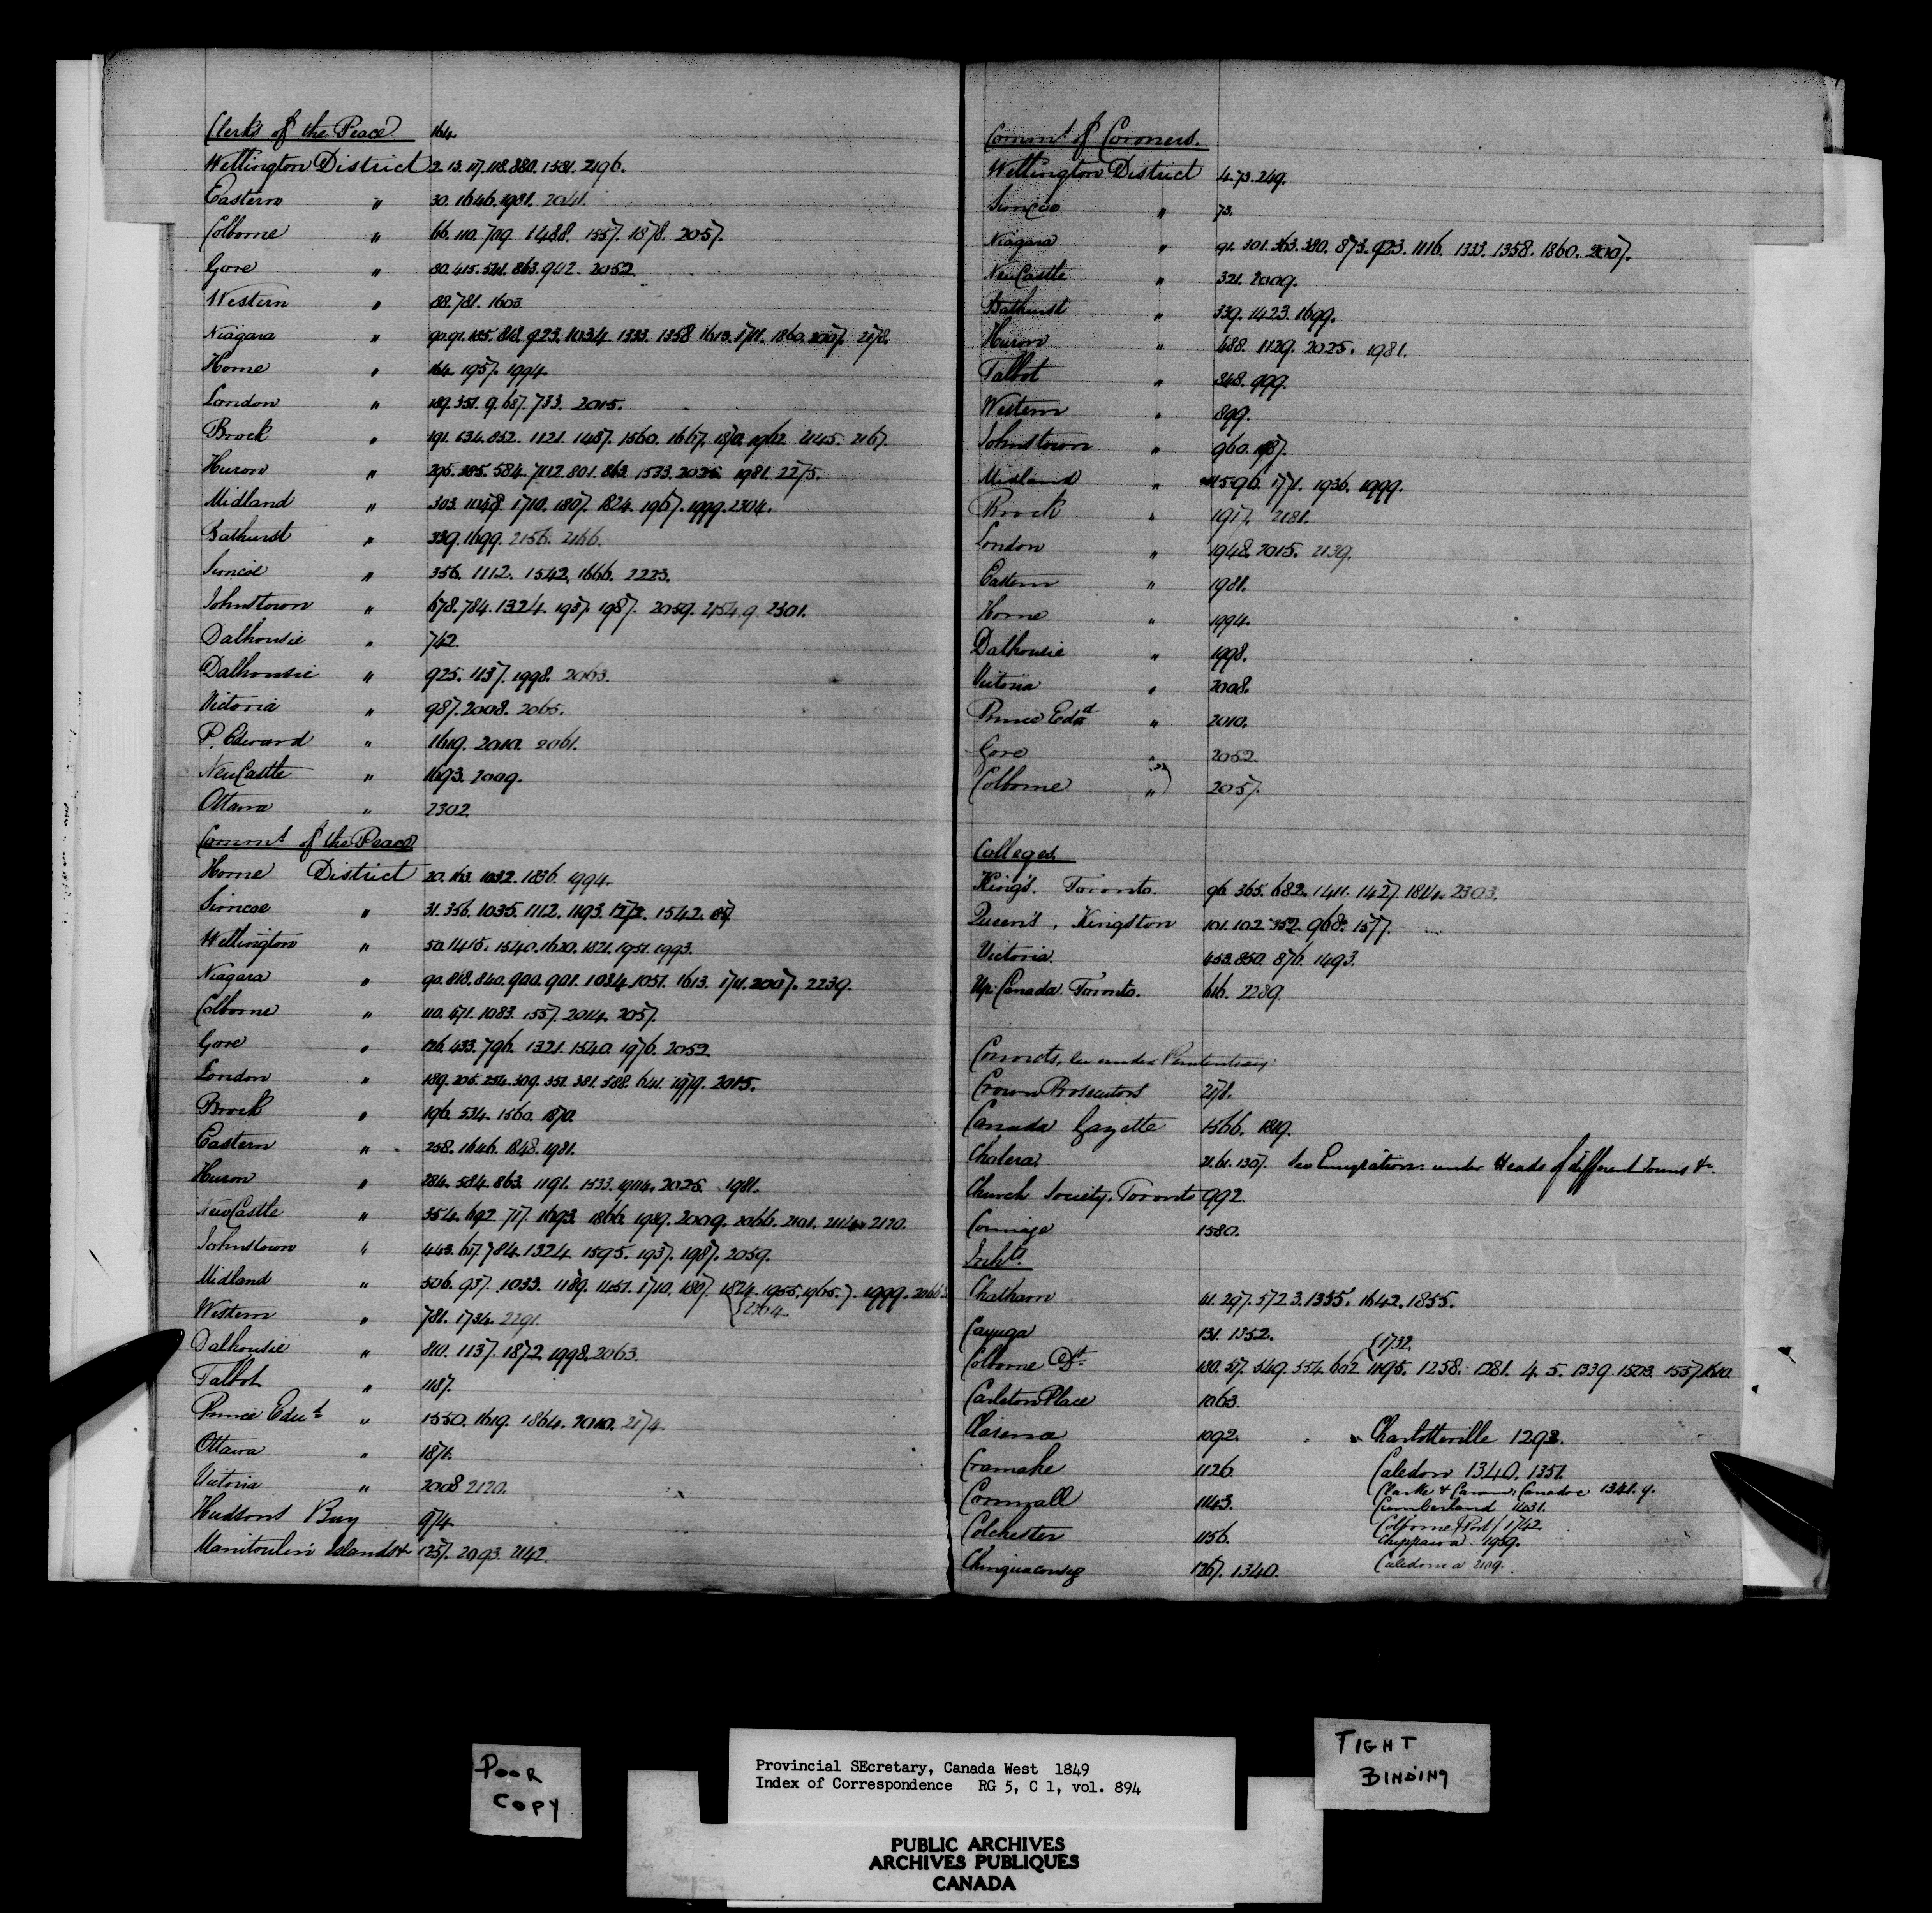 Clerks of the Peace 164.
Wellington District 2. 13. 17. 118. 380. 1381. 2196.
Eastern " 30. 1646. 1981. 2041.
Colborne " 66. 110. 709. 1488. 1557. 1878. 2057.
Gore " 80. 415. 541. 863. 902. 2052.
Western " 88. 781. 1603.
Niagara " 90. 91. 185. 818. 923. 1034. 1333. 1358. 1613. 1711. 1860. 2007. 2178.
Home " 164. 1957. 1994.
London " 189. 351. 9. 687. 733. 2015.
Brock " 191. 534. 852. 1121. 1487. 1560. 1667. 1870. 1962. 2145. 2167.
Huron " 295. 385. 584. 7112. 801. 863. 1533. 2025. 1981. 2275.
Midland " 303. 1048. 1710. 1807. 1824. 1967. 1999. 2304.
Bathurst " 339. 1699. 2156. 2166.
Simcoe " 356. 1112. 1542. 1666. 2223.
Johnstown " 678. 784. 1324. 1937. 1987. 2059. 2154. 9. 2301.
Dalhousie " 742.
Dalhousie " 925. 1137. 1998. 2063.
Victoria " 987. 2008. 2065.
P. Edward " 1619. 2010. 2061.
NewCastle " 1693. 2009.
Ottawa " 2302.
Comm.t of the Peace
Home District 20. 163. 1032. 1836. 1994.
Simcoe " 31. 356. 1035. 1112. 1193. 1272. 1542. 87.
Wellington " 50. 1415. 1540. 1620. 1821. 1951. 1993.
Niagara " 90. 818. 840. 900. 901. 1034. 1051. 1613. 1711. 2007. 2239.
Colborne " 110. 471. 1083. 1557. 2014. 2057.
Gore " 126. 433. 796. 1321. 1540. 1976. 2052.
London " 189. 205. 254. 309. 351. 381. 588. 641. 1979. 2015.
Brock " 196. 534. 1560. 1870.
Eastern " 258. 1646. 1848. 1981.
Huron " 284. 584. 863. 1191. 1533. 1904. 2025. 1981.
NewCastle " 354. 692. 717. 1693. 1866. 1989. 2009. 2066. 2101. 2114. 2120.
Johnstown " 443. 617. 784. 1324. 1595. 1937. 1987. 2059.
Midland " 506. 937. 1033. 1189. 1451. 1710. 1807. 1824. 1955. 1965. 7. 1999. 2066.
Western " 781. 1734. 2291. {2304.
Dalhousie " 810. 1137. 1872. 1998. 2063.
Talbot " 1187.
Prince Edw.d " 1550. 1619. 1864. 2010. 2174.
Ottawa " 1871.
Victoria " 2008. 2120.
Hudsons Bay 974.
Manitoulin Islands & 1257. 2093. 2142.
Comm.t of Coroners.
Wellington District 4. 73. 249.
Simcoe " 73.
Niagara " 91. 301. 363. 380. 873. 923. 1116. 1333. 1358. 1860. 2007.
NewCastle " 321. 2009.
Bathurst " 339. 1423. 1699.
Huron " 488. 1129. 2025. 1981.
Talbot " 848. 999.
Western " 899.
Johnstown " 960. 1987.
Midland " 1596. 1771. 1936. 1999.
Brock " 1917. 2181.
London " 1948. 2015. 2139.
Eastern " 1981.
Home " 1994.
Dalhousie " 1998.
Victoria " 2008.
Prince Edw.d " 2010.
Gore " 2052.
Colborne " 2057.
Colleges.
King's. Toronto. 96. 365. 682. 1411. 1427. 1814. 2303.
Queen's, Kingston 101. 102. 352. 968. 1577.
Victoria. 453. 850. 876. 1493.
Up. Canada. Toronto. 616. 2289.
Convicts, see under Penitentiary.
Crown Prosecutors 278.
Canada Gazette 1566. 1819.
Cholera. 21. 61. 1307. See Emigration. under Heads of different Towns &c.
Church Society. Toronto 992.
Coinage 1580.
Inh.ts
Chatham 41. 297. 572. 3. 1355. 1642. 1855.
Cayuga 131. 1352.
{1732.
Colborne D.t 180. 517. 549. 554. 602. 1195. 1258. 1281. 4. 5. 1339. 1503. 1557. 1610.
Carleton Place 1063.
Clarence 1092. Charlotteville 1293.
Cramahe 1126. Caledon 1340. 1351.
Clarke & Cavan, Caradoc 1341. 9.
Cornwall 1143. Cumberland 1431.
Colborne (Port) 1742.
Colchester 1156. Chippawa 1959.
Chinguacousy 1267. 1340. Caledonia 2109.
POOR
COPY
Provincial SEcretary, Canada West 1849
Index of Correspondence RG 5, C 1, vol. 894
TIGHT
BINDING
PUBLIC ARCHIVES
ARCHIVES PUBLIQUES
CANADA